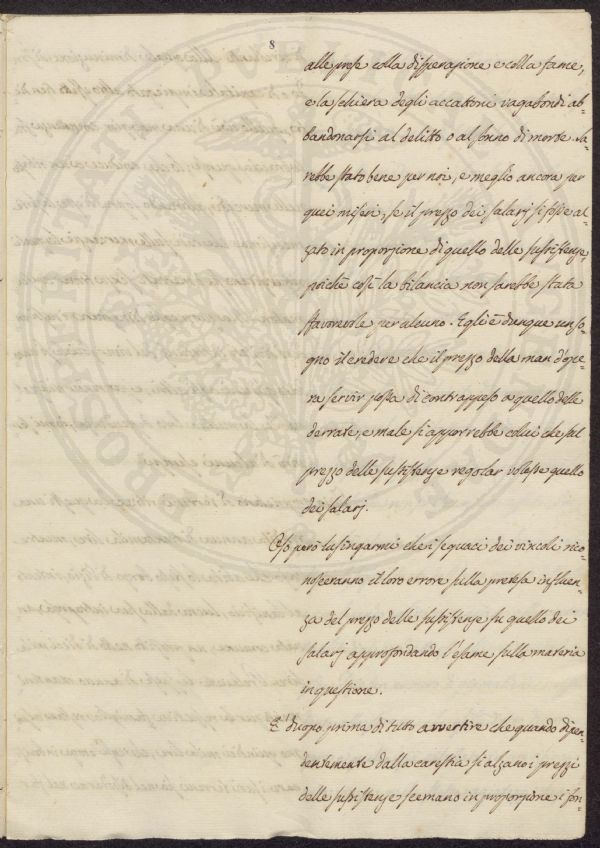 8
alle prese colla disperazione e colla fame,
e la schiera degli accattoni vagabondi ab-
bandonarsi al delitto o al sonno di morte. Sa-
rebbe stato bene per noi, e meglio ancora per
quei miseri, se il prezzo dei salarj si fosse al-
zato in proporzione di quello delle sussistenze,
poichè così la bilancia non sarebbe stata
favorevole per alcuno. Egli è dunque un so-
gno il credere che il prezzo della man d'ope-
ra servir possa di contrappeso a quello delle
derrate, e male si apporrebbe colui che sul
prezzo delle sussistenze regolar volesse quello
dei salarj.
Oso però lusingarmi che i seguaci dei vincoli rico-
nosceranno il loro errore sulla pretesa influen-
za del prezzo delle sussistenze su quello dei
salarj approfondando l'esame sulla materia
in questione.
E' d'uopo prima di tutto avvertire che quando dipen-
dentemente dalla carestia si alzano i prezzi
delle sussistenze scemano in proporzione i fon-